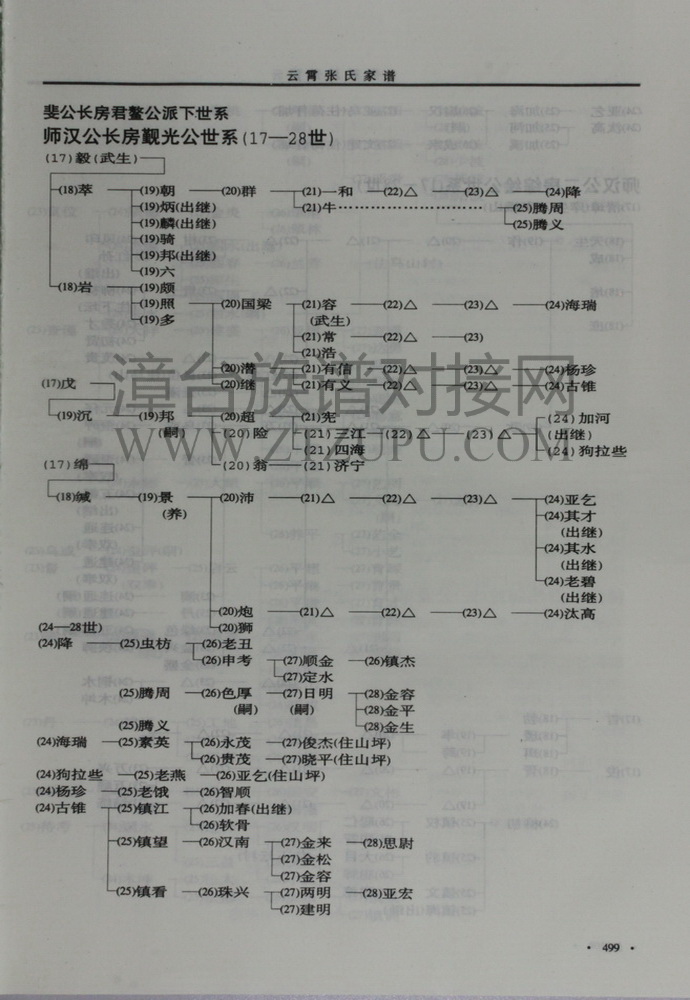 云霄张氏家谱
斐公长房君鳌公派下世系
师汉公长房觐光公世系(17—28世)
(17)毅(武生)
(18)萃 (19)朝 (20)群 (21)一和 (22)△ (23)△ (24)降
(19)炳(出继) (21)牛 (25)腾周
(19)麟(出继) (25)腾义
(19)骑
(19)邦(出继)
(19)六
(18)岩 (19)颇
(19)照 (20)国梁 (21)容 (22)△ (23)△ (24)海瑞
(19)多 (武生)
(21)常 (22)△ (23)
(21)浩
(20)潜 (21)有信 (22)△ (23)△ (24)杨珍
(17)戊 (20)继 (21)有义 (22)△ (23)△ (24)古锥
(19)沉 (19)邦 (20)超 (21)宪 (24)加河
(嗣) (20)险 (21)三江 (22)△ (23)△ (出继)
(21)四海 (24)狗拉些
(17)绵 (20)翁 (21)济宁
(18)缄 (19)景 (20)沛 (21)△ (22)△ (23)△ (24)亚乞
(养) (24)其才
(出继)
(24)其水
(出继)
(24)老碧
(出继)
(20)炮 (21)△ (22)△ (23)△ (24)汰高
(24—28世) (20)狮
(24)降 (25)虫枋 (26)老丑
(26)申考 (27)顺金 (26)镇杰
(27)定水
(25)腾周 (26)色厚 (27)日明 (28)金容
(嗣) (嗣) (28)金平
(25)腾义 (28)金生
(24)海瑞 (25)素英 (26)永茂 (27)俊杰(住山坪)
(26)贵茂 (27)晓平(住山坪)
(24)狗拉些 (25)老燕 (26)亚乞(住山坪)
(24)杨珍 (25)老饿 (26)智顺
(24)古锥 (25)镇江 (26)加春(出继)
(26)软骨
(25)镇望 (26)汉南 (27)金来 (28)思尉
(27)金松
(27)金容
(25)镇看 (26)珠兴 (27)两明 (28)亚宏
(27)建明
漳台族谱对接网
WWW.ZTZUPU.COM
· 499 ·